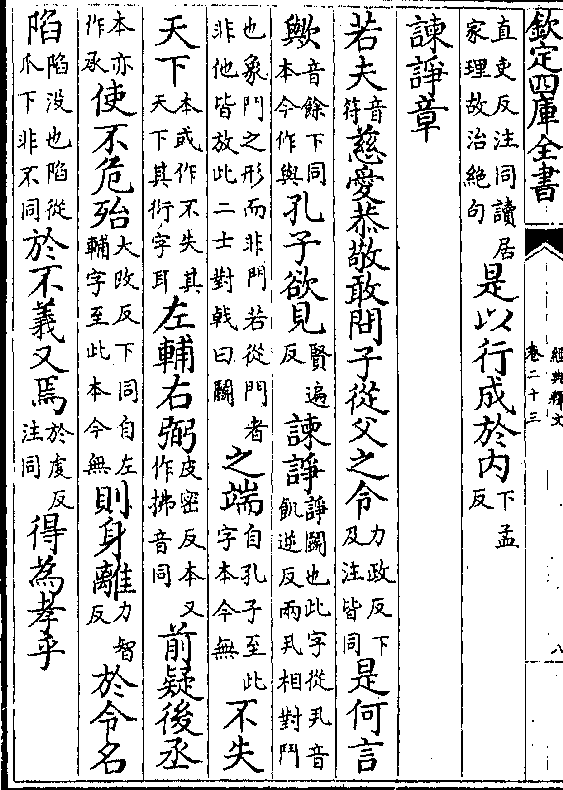 欽定四庫全書 經典釋文 卷二十三 八
直吏反注同讀居家理故治絕句 是以行成於内 下孟反
諫諍章
若夫 音符 慈愛恭敬敢問子從父之令 力政反下及注皆同 是何言
歟 音餘下同本今作與 孔子欲見 賢遍反 諫諍 諍鬭也此字從丮音飢逆反兩丮相對鬥
也象門之形而非門若從門者非他皆放此二士對戟曰鬭 之端 自孔子至此字本今無 不失
天下 本或作不失其天下其衍字耳 左輔右弼 皮密反本又作拂音同 前疑後丞
本亦作承 使不危殆 大改反下同自左輔字至此本今無 則身離 力智反 於令名
陷 陷没也陷從爪下非不同 於不義又焉 於虔反注同 得為孝乎